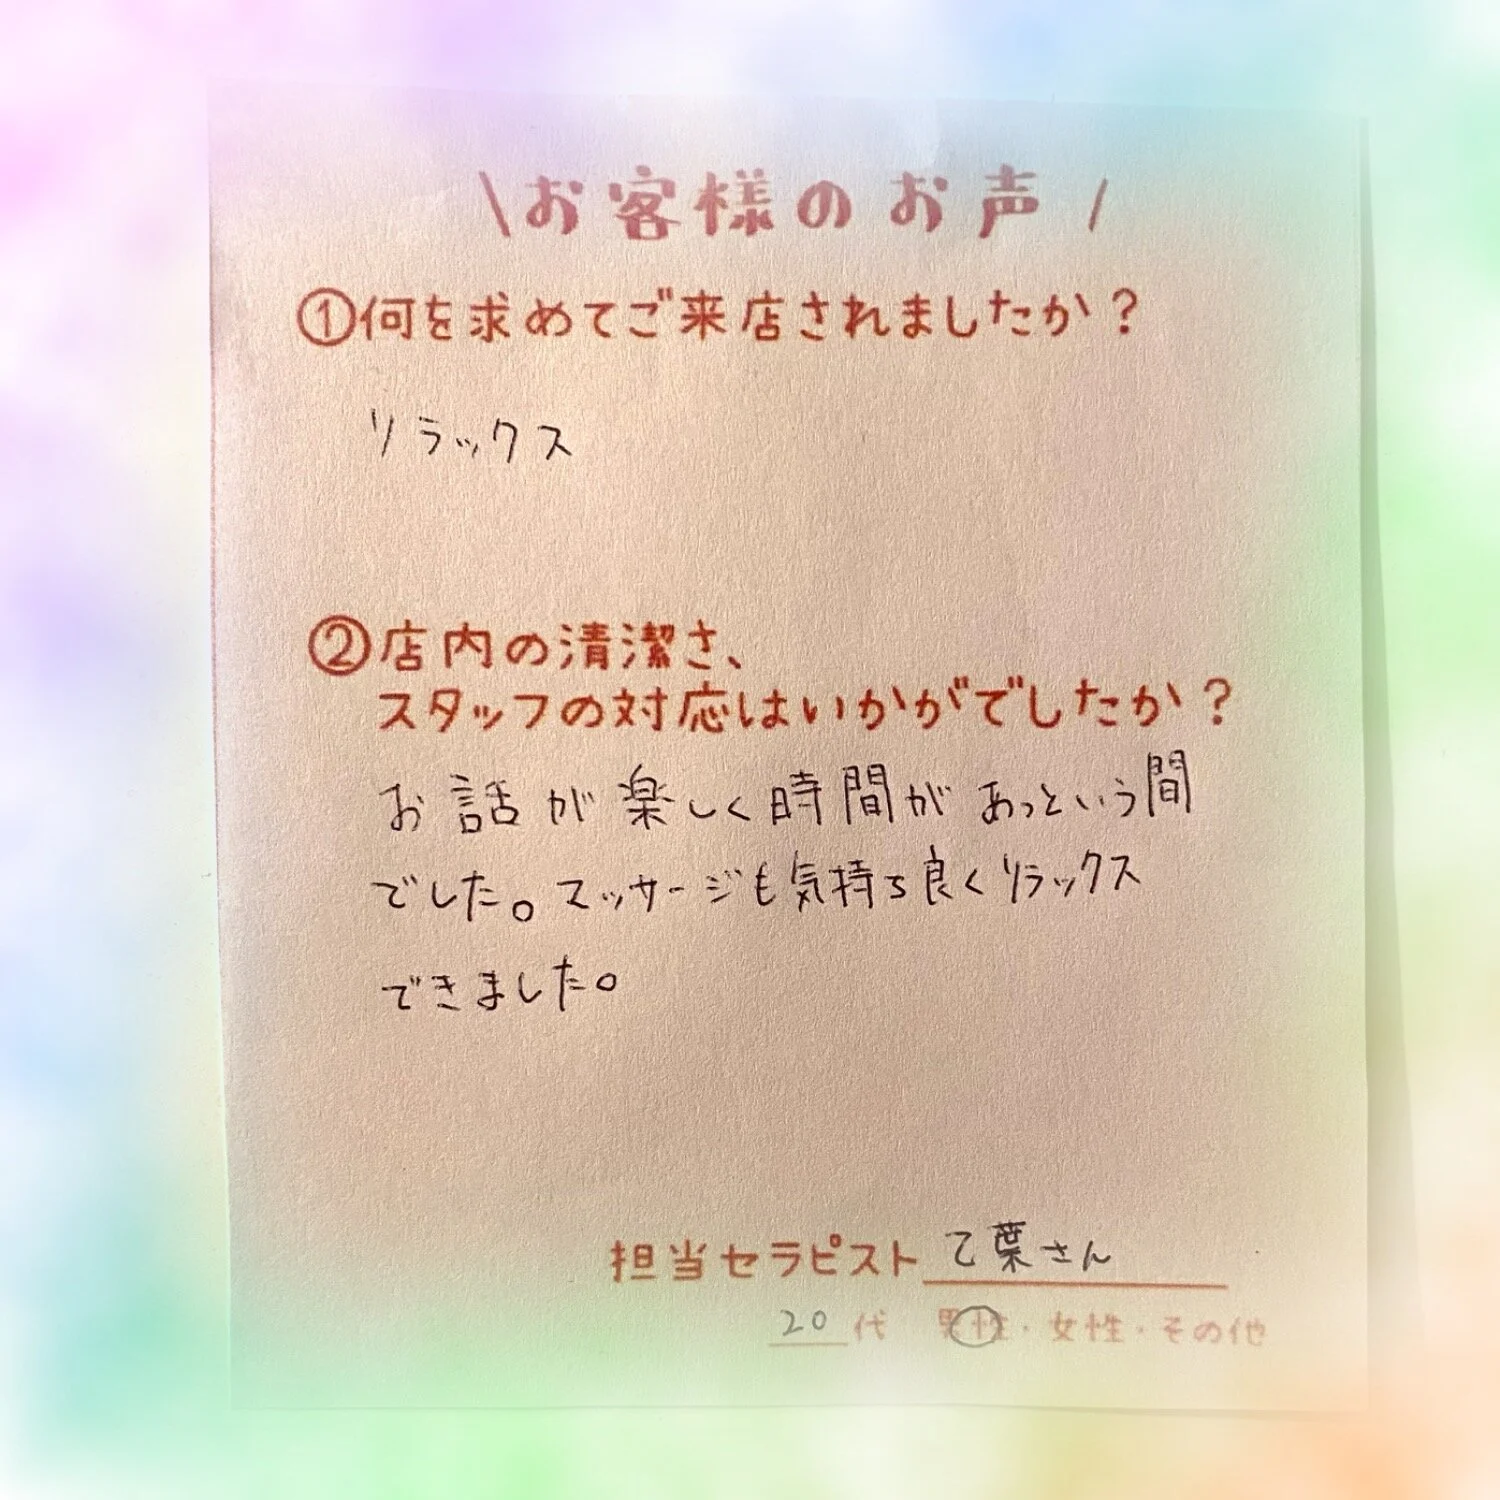 \お客様のお声/
①何を求めてご来店されましたか？
リラックス
②店内の清潔さ、
スタッフの対応はいかがでしたか？
お話が楽しく時間があっという間
でした。マッサージも気持ち良くリラックス
できました。
担当セラピスト 乙葉さん
20代 男性・女性・その他